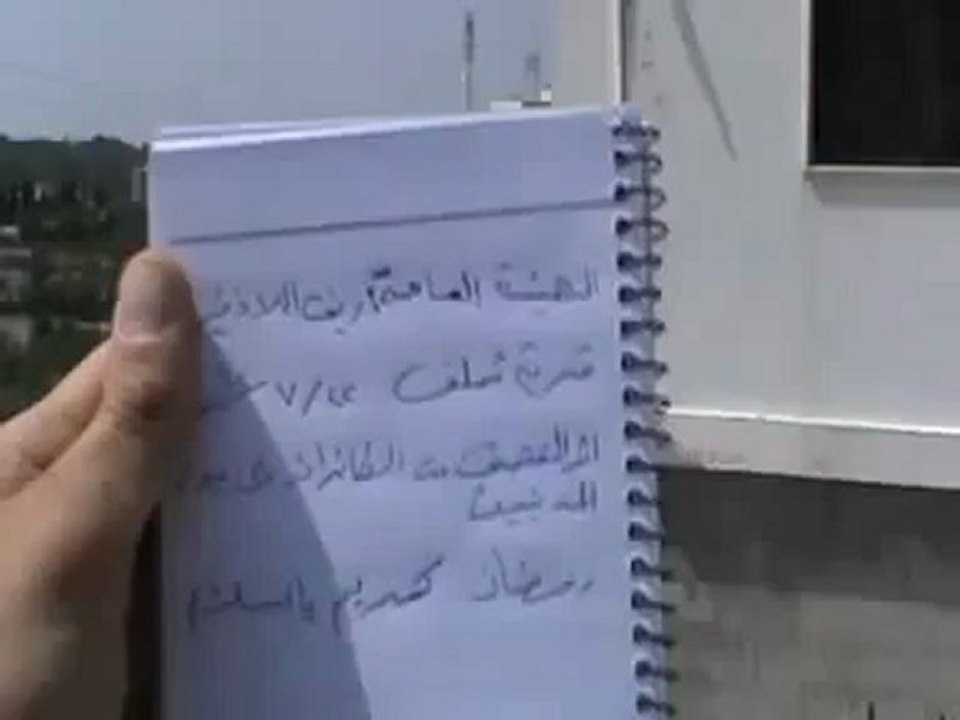 الهيئة العامة ريف اللاذقية
قرية شلف ٧/٢٤
اثر القصف من الطائرات على
المدنيين
رمضان كريم يا اسلام